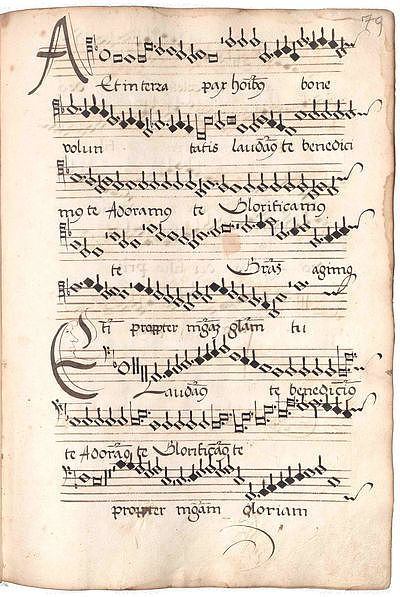 79
A Et in terra pax hoĩbꝯ bone
volun tatis laudãꝯ te benedici
mꝯ te Adoramꝯ te Glorificamꝯ
te Gr̃as agimꝯ
propter mgãʒ gl̃am tu
E Laudãꝯ te benedicĩꝯ
te Adorãꝯ te Glorificãꝯ te
propter mgãm gloriam